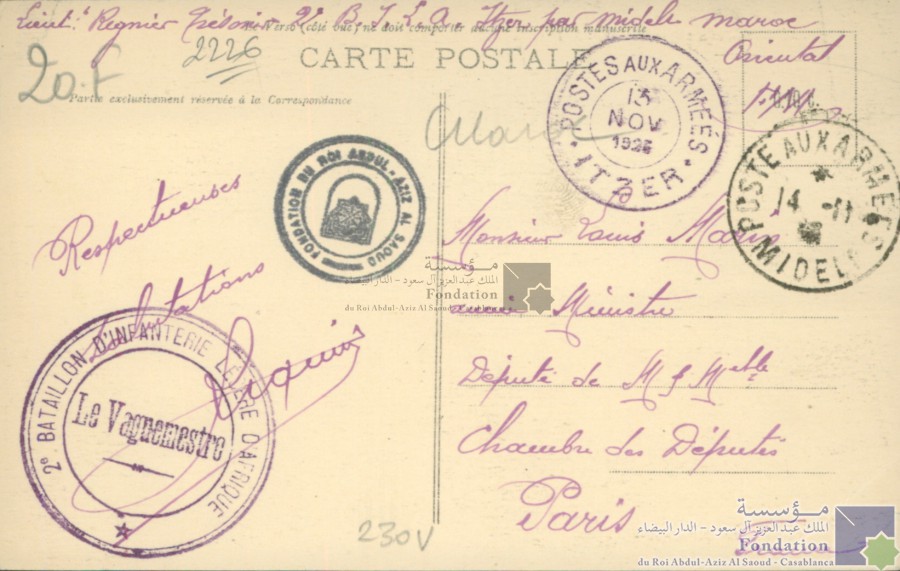 Lieut. Regnier Trésorier 2e B. I. L. A. Itzer par midelt maroc
Oriental
Le Verso (côté vue) ne doit comporter aucune inscription manuscrite
2226
CARTE POSTALE
20 F
Partie exclusivement réservée à la Correspondance
Maroc
POSTES AUX ARMÉES
13
NOV
1926
ITZER
POSTE AUX ARMÉES
14 -11
MIDELT
FONDATION DU ROI ABDUL-AZIZ AL SAOUD
Respectueuses
salutations
Regnier
2e BATAILLON D'INFANTERIE LÉGÈRE D'AFRIQUE
Le Vaguemestre
Monsieur Louis Marin
ancien Ministre
Député de M & Mlle
Chambre des Députés
Paris
مؤسسة
الملك عبد العزيز آل سعود - الدار البيضاء
Fondation
du Roi Abdul-Aziz Al Saoud - Casablanca
230V
مؤسسة
الملك عبد العزيز آل سعود - الدار البيضاء
Fondation
du Roi Abdul-Aziz Al Saoud - Casablanca